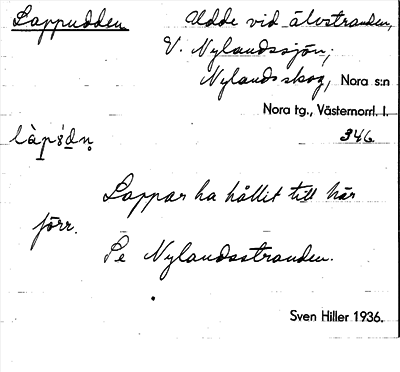 Lappudden
Udde vid älvstranden,
V. Nylandssjön,
Nylandsskog, Nora s:n
Nora tg., Västernorrl. l.
346
Lappar ha hållit till här
förr.
Se Nylandsstranden.
Sven Hiller 1936.